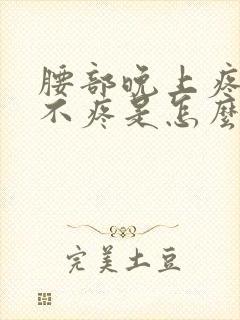 腰部晚上疼
不疼是怎麼
完美土豆